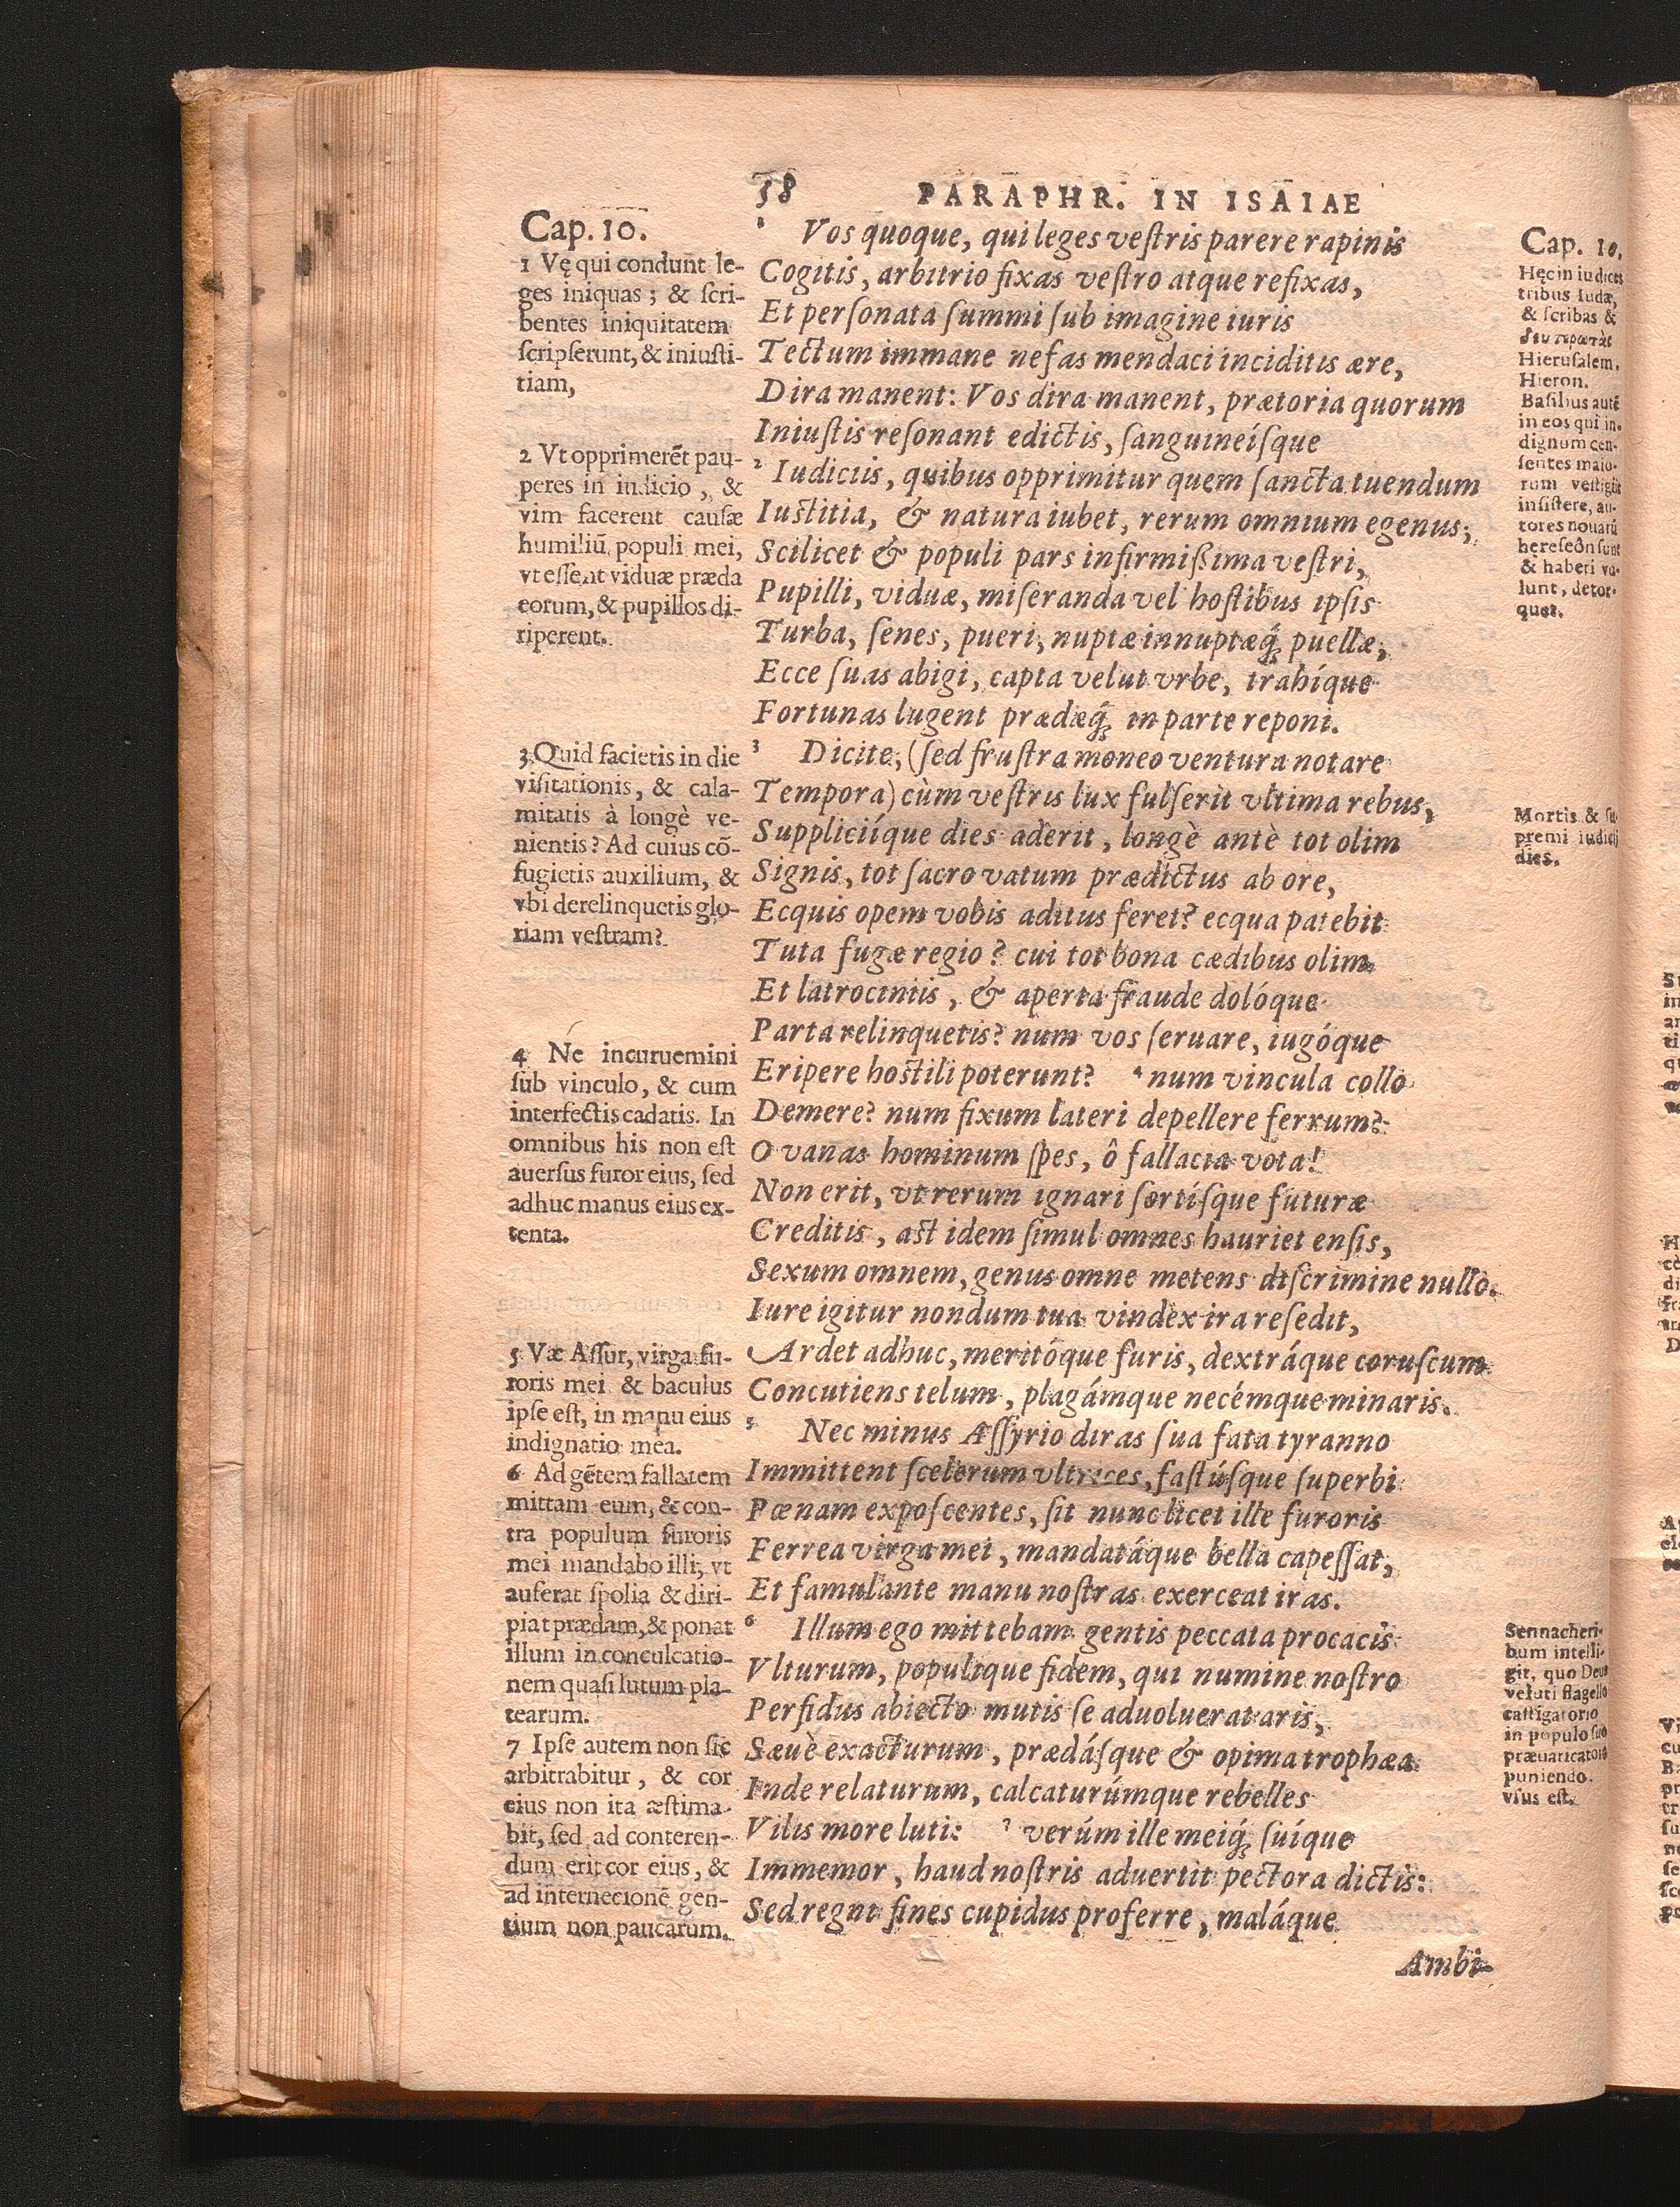 38 PARAPHR. IN ISAIAE
Cap. 10.
1 Vę qui condunt le-
ges iniquas; & ſcri-
bentes iniquitatem
ſcripſerunt, & iniuſti-
tiam,
2 Vt opprimerẽt pau-
peres in iudicio, &
vim facerent cauſæ
humiliũ populi mei,
vt eſſent viduæ præda
eorum, & pupillos di-
riperent.
3 Quid facietis in die
viſitationis, & cala-
mitatis à longè ve-
nientis? Ad cuius cõ-
fugietis auxilium, &
vbi derelinquetis glo-
riam veſtram?
4 Ne incuruemini
ſub vinculo, & cum
interfectis cadatis. In
omnibus his non eſt
auerſus furor eius, ſed
adhuc manus eius ex-
tenta.
5 Væ Aſſur, virga fu-
roris mei & baculus
ipſe eſt, in manu eius
indignatio mea.
6 Ad gẽtem fallacem
mittam eum, & con-
tra populum furoris
mei mandabo illi, vt
auferat ſpolia & diri-
piat prædam, & ponat
illum in conculcatio-
nem quaſi lutum pla-
tearum.
7 Ipſe autem non ſic
arbitrabitur, & cor
eius non ita æſtima-
bit, ſed ad conteren-
dum erit cor eius, &
ad internecionẽ gen-
tium non paucarum.
1 Vos quoque, qui leges veſtris parere rapinis
Cogitis, arbitrio fixas veſtro atque refixas,
Et perſonata ſummi ſub imagine iuris
Tectum immane nefas mendaci inciditis ære,
Dira manent: Vos dira manent, prætoria quorum
Iniuſtis reſonant edictis, ſanguineíſque
2 Iudiciis, quibus opprimitur quem ſancta tuendum
Iuſtitia, & natura iubet, rerum omnium egenus;
Scilicet & populi pars infirmißima veſtri,
Pupilli, viduæ, miſeranda vel hoſtibus ipſis
Turba, ſenes, pueri, nuptæ innuptæq́; puellæ,
Ecce ſuas abigi, capta velut vrbe, trahíque
Fortunas lugent prædæq́; in parte reponi.
3 Dicite, (ſed fruſtra moneo ventura notare
Tempora) cùm veſtris lux fulſerit vltima rebus,
Suppliciíque dies aderit, longè antè tot olim
Signis, tot ſacro vatum prædictus ab ore,
Ecquis opem vobis aditus feret? ecqua patebit
Tuta fugæ regio? cui tot bona cædibus olim
Et latrociniis, & aperta fraude dolóque
Parta relinquetis? num vos ſeruare, iugóque
Eripere hoſtili poterunt? 4 num vincula collo
Demere? num fixum lateri depellere ferrum?
O vanas hominum ſpes, ô fallacia vota!
Non erit, vt rerum ignari ſortíſque futuræ
Creditis, aſt idem ſimul omnes hauriet enſis,
Sexum omnem, genus omne metens diſcrimine nullo.
Iure igitur nondum tua vindex ira reſedit,
Ardet adhuc, meritóque furis, dextráque coruſcum
Concutiens telum, plagámque necémque minaris.
5 Nec minus Aſſyrio diras ſua fata tyranno
Immittent ſcelerum vltrices, faſtúſque ſuperbi
Pœnam expoſcentes, ſit nunc licet ille furoris
Ferrea virga mei, mandatáque bella capeſſat,
Et famulante manu noſtras exerceat iras.
6 Illum ego mittebam gentis peccata procacis
Vlturum, populique fidem, qui numine noſtro
Perfidus abiecto mutis ſe aduoluerat aris,
Sæuè exacturum, prædáſque & opima trophæa
Inde relaturum, calcaturúmque rebelles
Vilis more luti: 7 verúm ille meiq́; ſuíque
Immemor, haud noſtris aduertit pectora dictis:
Sed regni fines cupidus proferre, maláque
Ambi-
Cap. 10.
Hęc in iudices
tribus Iudæ,
& ſcribas &
Hieruſalem.
Hieron.
Baſilius autẽ
in eos qui in-
dignum cen-
ſentes maio-
rum veſtigiis
inſiſtere, au-
tores nouarũ
hereſeôn ſunt
& haberi vo-
lunt, detor-
quet.
Mortis & ſu-
premi iudicij
dies.
Sennacheri-
bum intelli-
git, quo Deus
veluti flagello
caſtigatorio
in populo ſuo
præuaricatore
puniendo
vſus eſt.